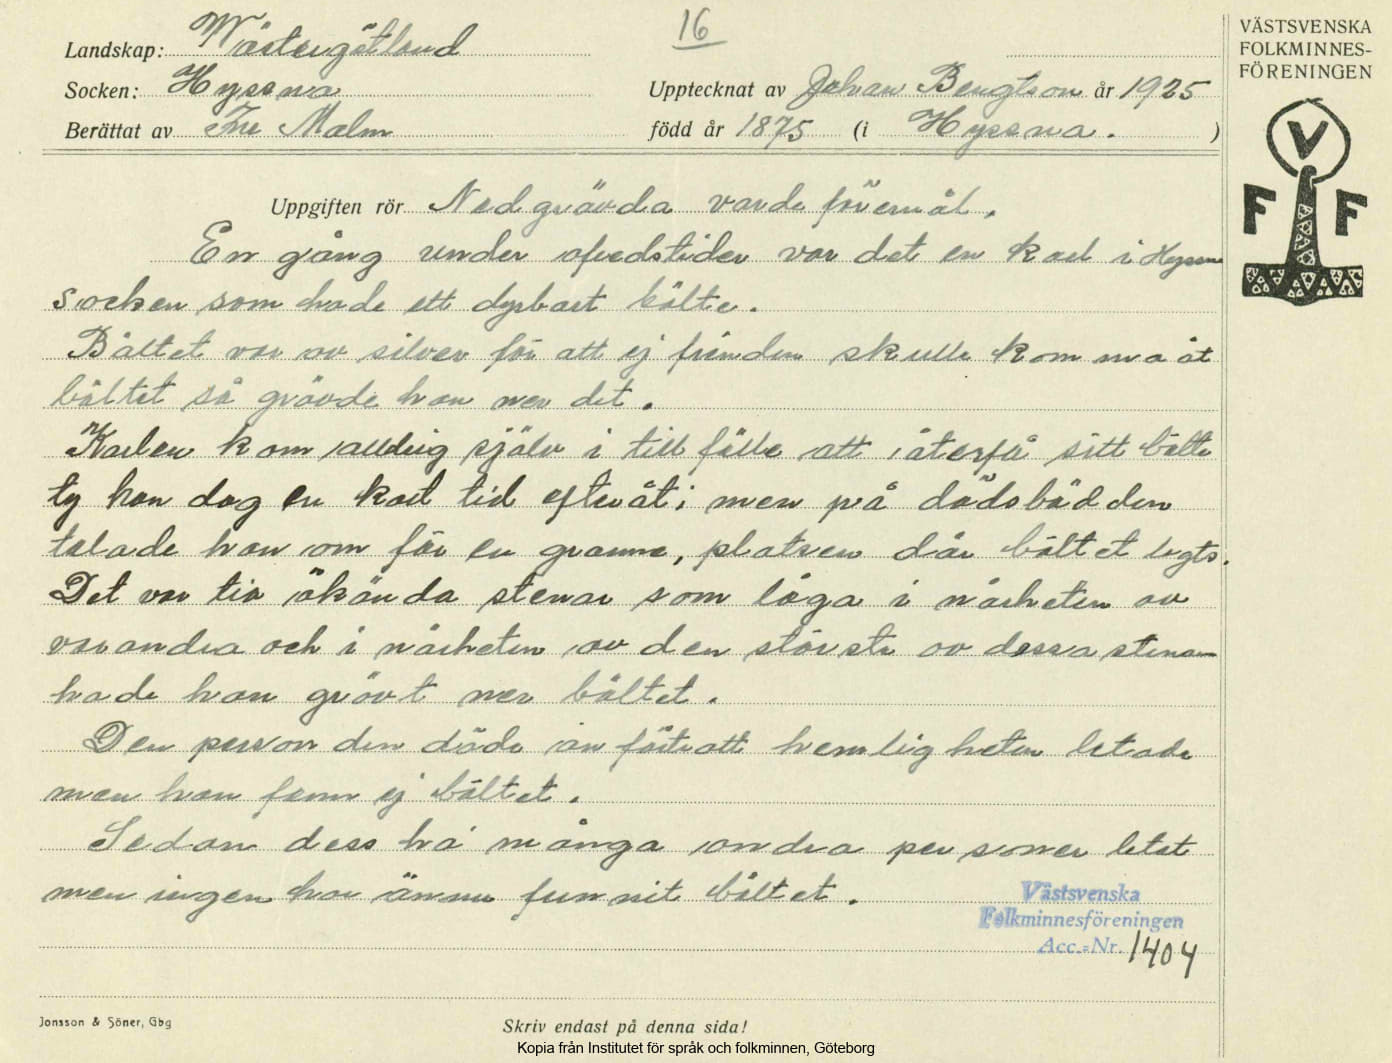 16
Landskap: Västergötland
VÄSTSVENSKA
FOLKMINNES-
FÖRENINGEN
Socken: Hyssna
Upptecknat av Johan Bengtson år 1925
Berättat av Malm
född år 1875 (i Hyssna. )
V
F F
Uppgiften rör Nedgrävda varde föremål.
En gång under ofredstider var det en karl i Hyssna
socken som hade ett dyrbart bälte.
Bältet var av silver för att ej fienden skulle komma åt
bältet så grävde han ner det.
Karlen kom alldrig själv i tillfälle att återfå sitt bälte
ty han dog en kort tid efteråt; men på dödsbädden
talade han om för en granne, platsen där bältet legts.
Det var tio ökända stenar som låga i närheten av
varandra och i närheten av den största av dessa stenar
hade han grävt ner bältet.
Den person den döde an förtrott hemligheten letade
men han fann ej bältet.
Sedan dess ha många andra personer letat
men ingen har ännu funnit bältet.
Västsvenska
Folkminnesföreningen
Acc.-Nr. 1404
Jonsson & Söner, Gbg
Skriv endast på denna sida!
Kopia från Institutet för språk och folkminnen, Göteborg